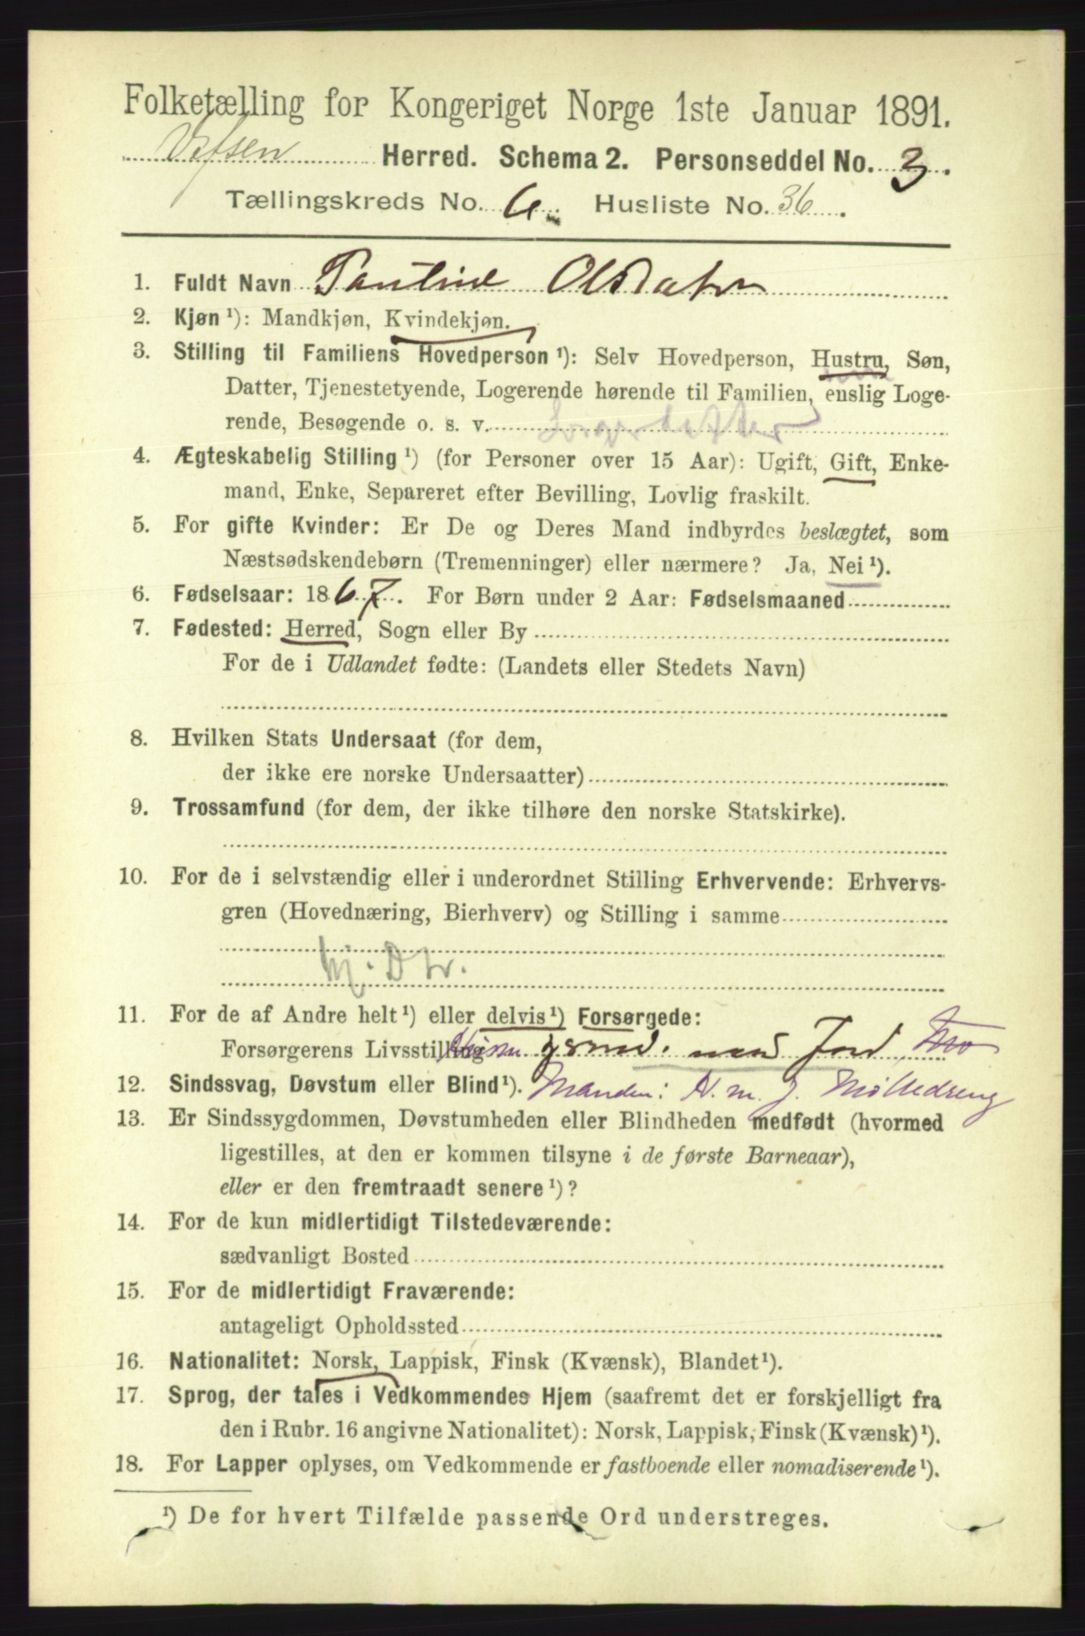 Folketælling for Kongeriget Norge 1ste Januar 1891.
Vefsen Herred. Schema 2. Personseddel No. 3.
Tællingskreds No. 6. Husliste No. 36.
1. Fuldt Navn Pauline Olsdatr
2. Kjøn ¹): Mandkjøn, Kvindekjøn.
3. Stilling til Familiens Hovedperson ¹): Selv Hovedperson, Hustru, Søn,
Datter, Tjenestetyende, Logerende hørende til Familien, enslig Loge-
rende, Besøgende o. s. v.
4. Ægteskabelig Stilling ¹) (for Personer over 15 Aar): Ugift, Gift, Enke-
mand, Enke, Separeret efter Bevilling, Lovlig fraskilt.
5. For gifte Kvinder: Er De og Deres Mand indbyrdes beslægtet, som
Næstsødskendebørn (Tremenninger) eller nærmere? Ja, Nei ¹).
6. Fødselsaar: 1867. For Børn under 2 Aar: Fødselsmaaned
7. Fødested: Herred, Sogn eller By
For de i Udlandet fødte: (Landets eller Stedets Navn)
8. Hvilken Stats Undersaat (for dem,
der ikke ere norske Undersaatter)
9. Trossamfund (for dem, der ikke tilhøre den norske Statskirke).
10. For de i selvstændig eller i underordnet Stilling Erhvervende: Erhvervs-
gren (Hovednæring, Bierhverv) og Stilling i samme
11. For de af Andre helt ¹) eller delvis ¹) Forsørgede:
Forsørgerens Livsstilling med Jord
12. Sindssvag, Døvstum eller Blind ¹). Manden:
13. Er Sindssygdommen, Døvstumheden eller Blindheden medfødt (hvormed
ligestilles, at den er kommen tilsyne i de første Barneaar),
eller er den fremtraadt senere ¹)?
14. For de kun midlertidigt Tilstedeværende:
sædvanligt Bosted
15. For de midlertidigt Fraværende:
antageligt Opholdssted
16. Nationalitet: Norsk, Lappisk, Finsk (Kvænsk), Blandet ¹).
17. Sprog, der tales i Vedkommendes Hjem (saafremt det er forskjelligt fra
den i Rubr. 16 angivne Nationalitet): Norsk, Lappisk, Finsk (Kvænsk) ¹).
18. For Lapper oplyses, om Vedkommende er fastboende eller nomadiserende ¹).
¹) De for hvert Tilfælde passende Ord understreges.